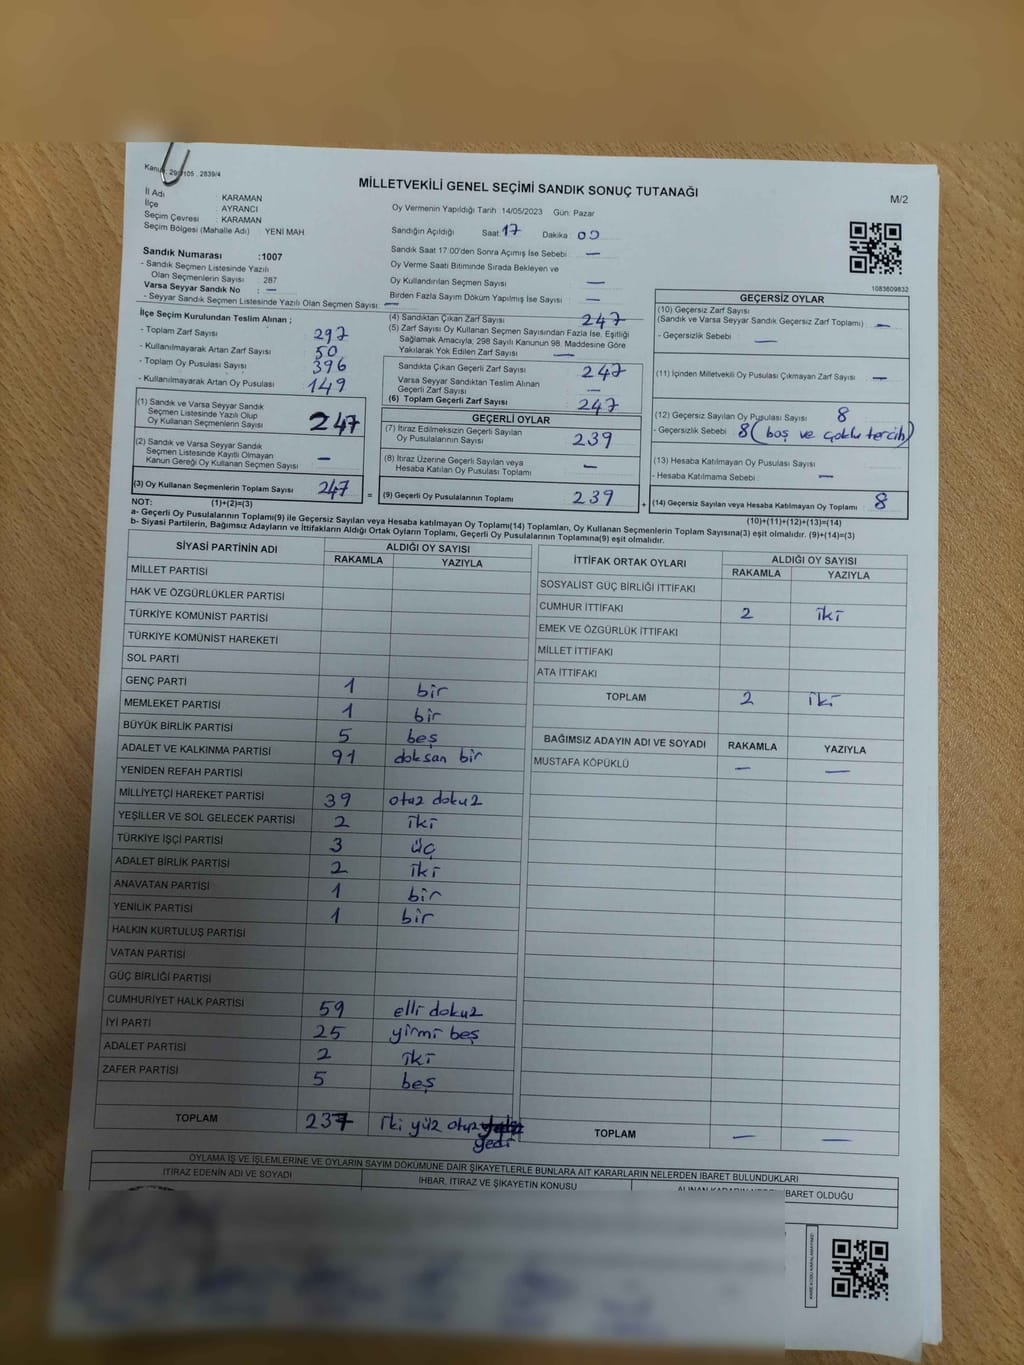 Kanun: 298/105 , 2839/4
MİLLETVEKİLİ GENEL SEÇİMİ SANDIK SONUÇ TUTANAĞI
M/2
İl Adı : KARAMAN
İlçe : AYRANCI
Seçim Çevresi : KARAMAN
Seçim Bölgesi (Mahalle Adı) YENİ MAH
Oy Vermenin Yapıldığı Tarih 14/05/2023 Gün: Pazar
Sandığın Açıldığı Saat 17 Dakika 00
Sandık Saat 17:00'den Sonra Açımış İse Sebebi —
Oy Verme Saati Bitiminde Sırada Bekleyen ve
Oy Kullandırılan Seçmen Sayısı —
Birden Fazla Sayım Döküm Yapılmış İse Sayısı —
1083609832
Sandık Numarası :1007
- Sandık Seçmen Listesinde Yazılı
Olan Seçmenlerin Sayısı : 287
Varsa Seyyar Sandık No : —
- Seyyar Sandık Seçmen Listesinde Yazılı Olan Seçmen Sayısı: —
İlçe Seçim Kurulundan Teslim Alınan ;
- Toplam Zarf Sayısı 297
- Kullanılmayarak Artan Zarf Sayısı 50
- Toplam Oy Pusulası Sayısı 396
- Kullanılmayarak Artan Oy Pusulası 149
(1) Sandık ve Varsa Seyyar Sandık
Seçmen Listesinde Yazılı Olup
Oy Kullanan Seçmenlerin Sayısı 247
(2) Sandık ve Varsa Seyyar Sandık
Seçmen Listesinde Kayıtlı Olmayan
Kanun Gereği Oy Kullanan Seçmen Sayısı —
(3) Oy Kullanan Seçmenlerin Toplam Sayısı 247 =
(1)+(2)=(3)
(4) Sandıktan Çıkan Zarf Sayısı 247
(5) Zarf Sayısı Oy Kullanan Seçmen Sayısından Fazla İse, Eşitliği
Sağlamak Amacıyla; 298 Sayılı Kanunun 98. Maddesine Göre
Yakılarak Yok Edilen Zarf Sayısı —
Sandıkta Çıkan Geçerli Zarf Sayısı 247
Varsa Seyyar Sandıktan Teslim Alınan
Geçerli Zarf Sayısı —
(6) Toplam Geçerli Zarf Sayısı 247
GEÇERLİ OYLAR
(7) İtiraz Edilmeksizin Geçerli Sayılan
Oy Pusulalarının Sayısı 239
(8) İtiraz Üzerine Geçerli Sayılan veya
Hesaba Katılan Oy Pusulası Toplamı —
(9) Geçerli Oy Pusulalarının Toplamı 239 +
GEÇERSİZ OYLAR
(10) Geçersiz Zarf Sayısı
(Sandık ve Varsa Seyyar Sandık Geçersiz Zarf Toplamı) —
- Geçersizlik Sebebi : —
(11) İçinden Milletvekili Oy Pusulası Çıkmayan Zarf Sayısı —
(12) Geçersiz Sayılan Oy Pusulası Sayısı 8
- Geçersizlik Sebebi : 8 (boş ve çoklu tercih)
(13) Hesaba Katılmayan Oy Pusulası Sayısı
- Hesaba Katılmama Sebebi : —
(14) Geçersiz Sayılan veya Hesaba Katılmayan Oy Toplamı 8
(10)+(11)+(12)+(13)=(14)
NOT:
a- Geçerli Oy Pusulalarının Toplamı(9) ile Geçersiz Sayılan veya Hesaba katılmayan Oy Toplamı(14) Toplamları, Oy Kullanan Seçmenlerin Toplam Sayısına(3) eşit olmalıdır. (9)+(14)=(3)
b- Siyasi Partilerin, Bağımsız Adayların ve İttifakların Aldığı Ortak Oyların Toplamı, Geçerli Oy Pusulalarının Toplamına(9) eşit olmalıdır.
SİYASİ PARTİNİN ADI ALDIĞI OY SAYISI
RAKAMLA YAZIYLA
MİLLET PARTİSİ
HAK VE ÖZGÜRLÜKLER PARTİSİ
TÜRKİYE KOMÜNİST PARTİSİ
TÜRKİYE KOMÜNİST HAREKETİ
SOL PARTİ
GENÇ PARTİ 1 bir
MEMLEKET PARTİSİ 1 bir
BÜYÜK BİRLİK PARTİSİ 5 beş
ADALET VE KALKINMA PARTİSİ 91 doksan bir
YENİDEN REFAH PARTİSİ
MİLLİYETÇİ HAREKET PARTİSİ 39 otuz dokuz
YEŞİLLER VE SOL GELECEK PARTİSİ 2 iki
TÜRKİYE İŞÇİ PARTİSİ 3 üç
ADALET BİRLİK PARTİSİ 2 iki
ANAVATAN PARTİSİ 1 bir
YENİLİK PARTİSİ 1 bir
HALKIN KURTULUŞ PARTİSİ
VATAN PARTİSİ
GÜÇ BİRLİĞİ PARTİSİ
CUMHURİYET HALK PARTİSİ 59 elli dokuz
İYİ PARTİ 25 yirmi beş
ADALET PARTİSİ 2 iki
ZAFER PARTİSİ 5 beş
TOPLAM 237 iki yüz otuz
yedi
İTTİFAK ORTAK OYLARI ALDIĞI OY SAYISI
RAKAMLA YAZIYLA
SOSYALİST GÜÇ BİRLİĞİ İTTİFAKI
CUMHUR İTTİFAKI 2 iki
EMEK VE ÖZGÜRLÜK İTTİFAKI
MİLLET İTTİFAKI
ATA İTTİFAKI
TOPLAM 2 iki
BAĞIMSIZ ADAYIN ADI VE SOYADI RAKAMLA YAZIYLA
MUSTAFA KÖPÜKLÜ — —
TOPLAM — —
OYLAMA İŞ VE İŞLEMLERİNE VE OYLARIN SAYIM DÖKÜMÜNE DAİR ŞİKAYETLERLE BUNLARA AİT KARARLARIN NELERDEN İBARET BULUNDUKLARI
İTİRAZ EDENİN ADI VE SOYADI
İHBAR, İTİRAZ VE ŞİKAYETİN KONUSU
ALINAN KARARIN NEDEN İBARET OLDUĞU